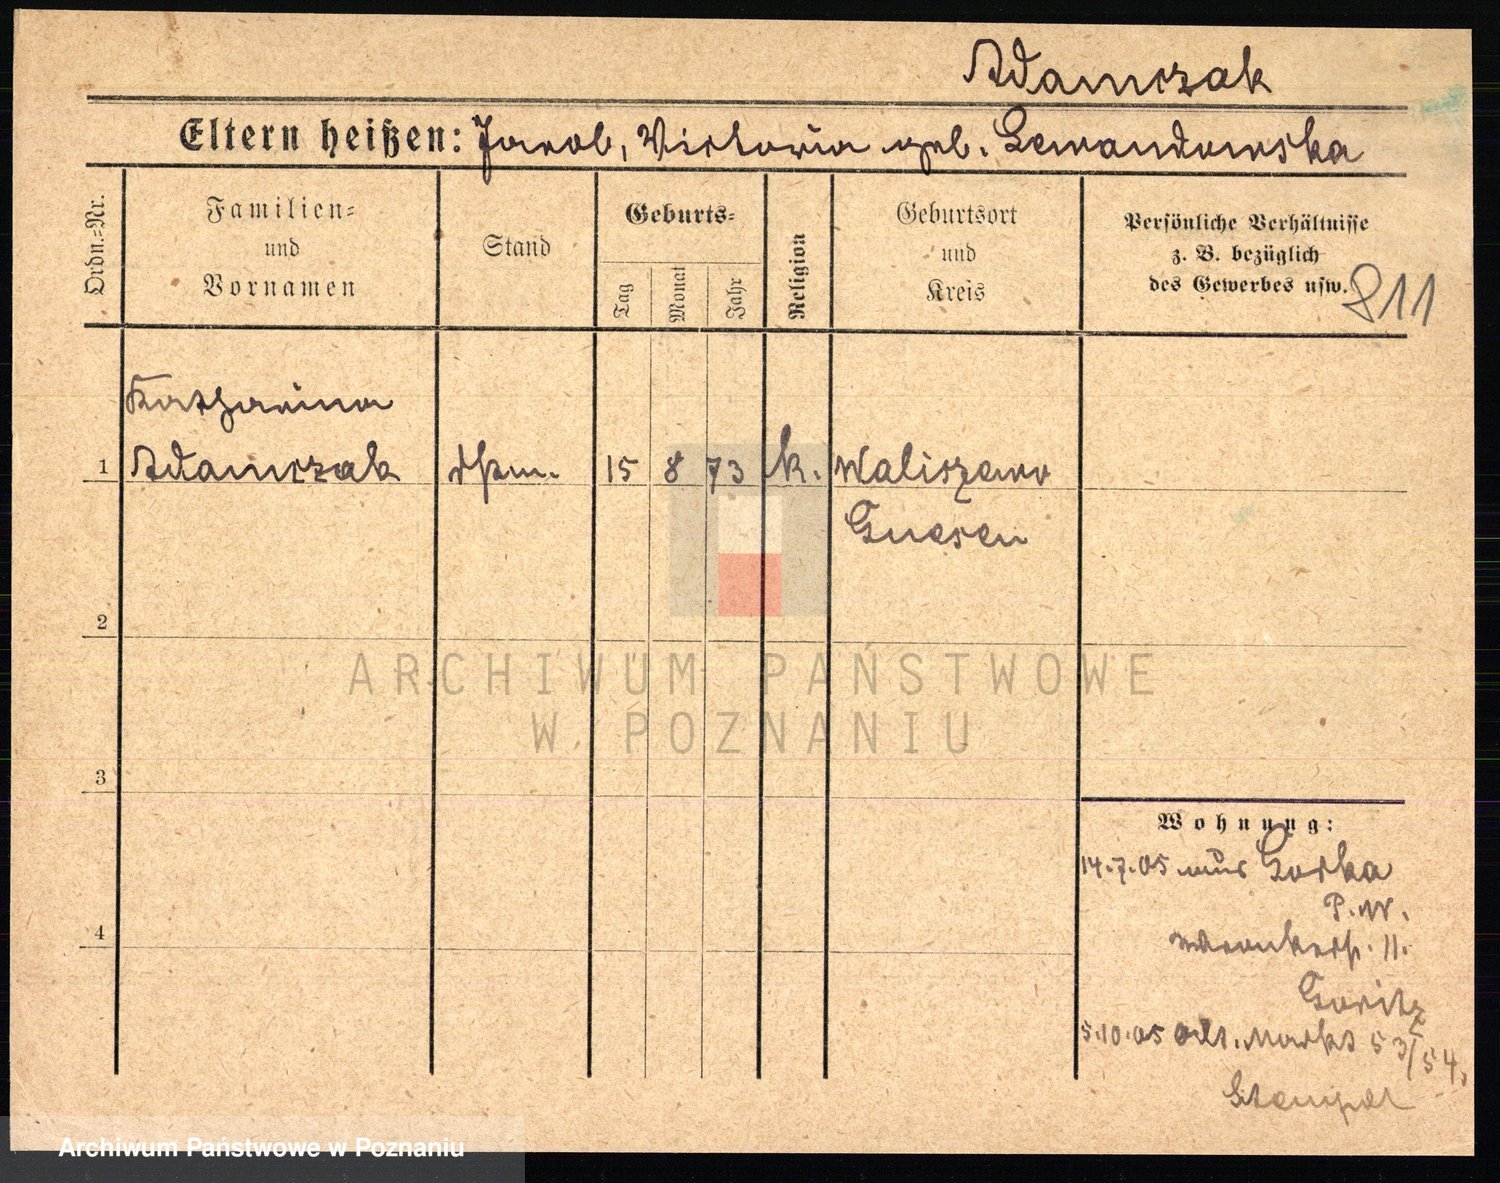 Adamczak
Eltern heißen: Jacob, Victoria geb. Lewandowska
Ordn.-Nr.
Familien-
und
Vornamen
Stand
Geburts-
Tag
Monat
Jahr
Religion
Geburtsort
und
Kreis
Persönliche Verhältnisse
z. B. bezüglich
des Gewerbes usw.
811
Katharina
1 Adamczak 15 8 73 k. Waliszewo
Gnesen
2
3
4
Wohnung:
14.7.05 aus Gorka
P. W.
Wronkerstr. 11.
Goritz
5.10.05 Alt. Markt 53/54,
Stempel
ARCHIWUM PAŃSTWOWE
W POZNANIU
Archiwum Państwowe w Poznaniu